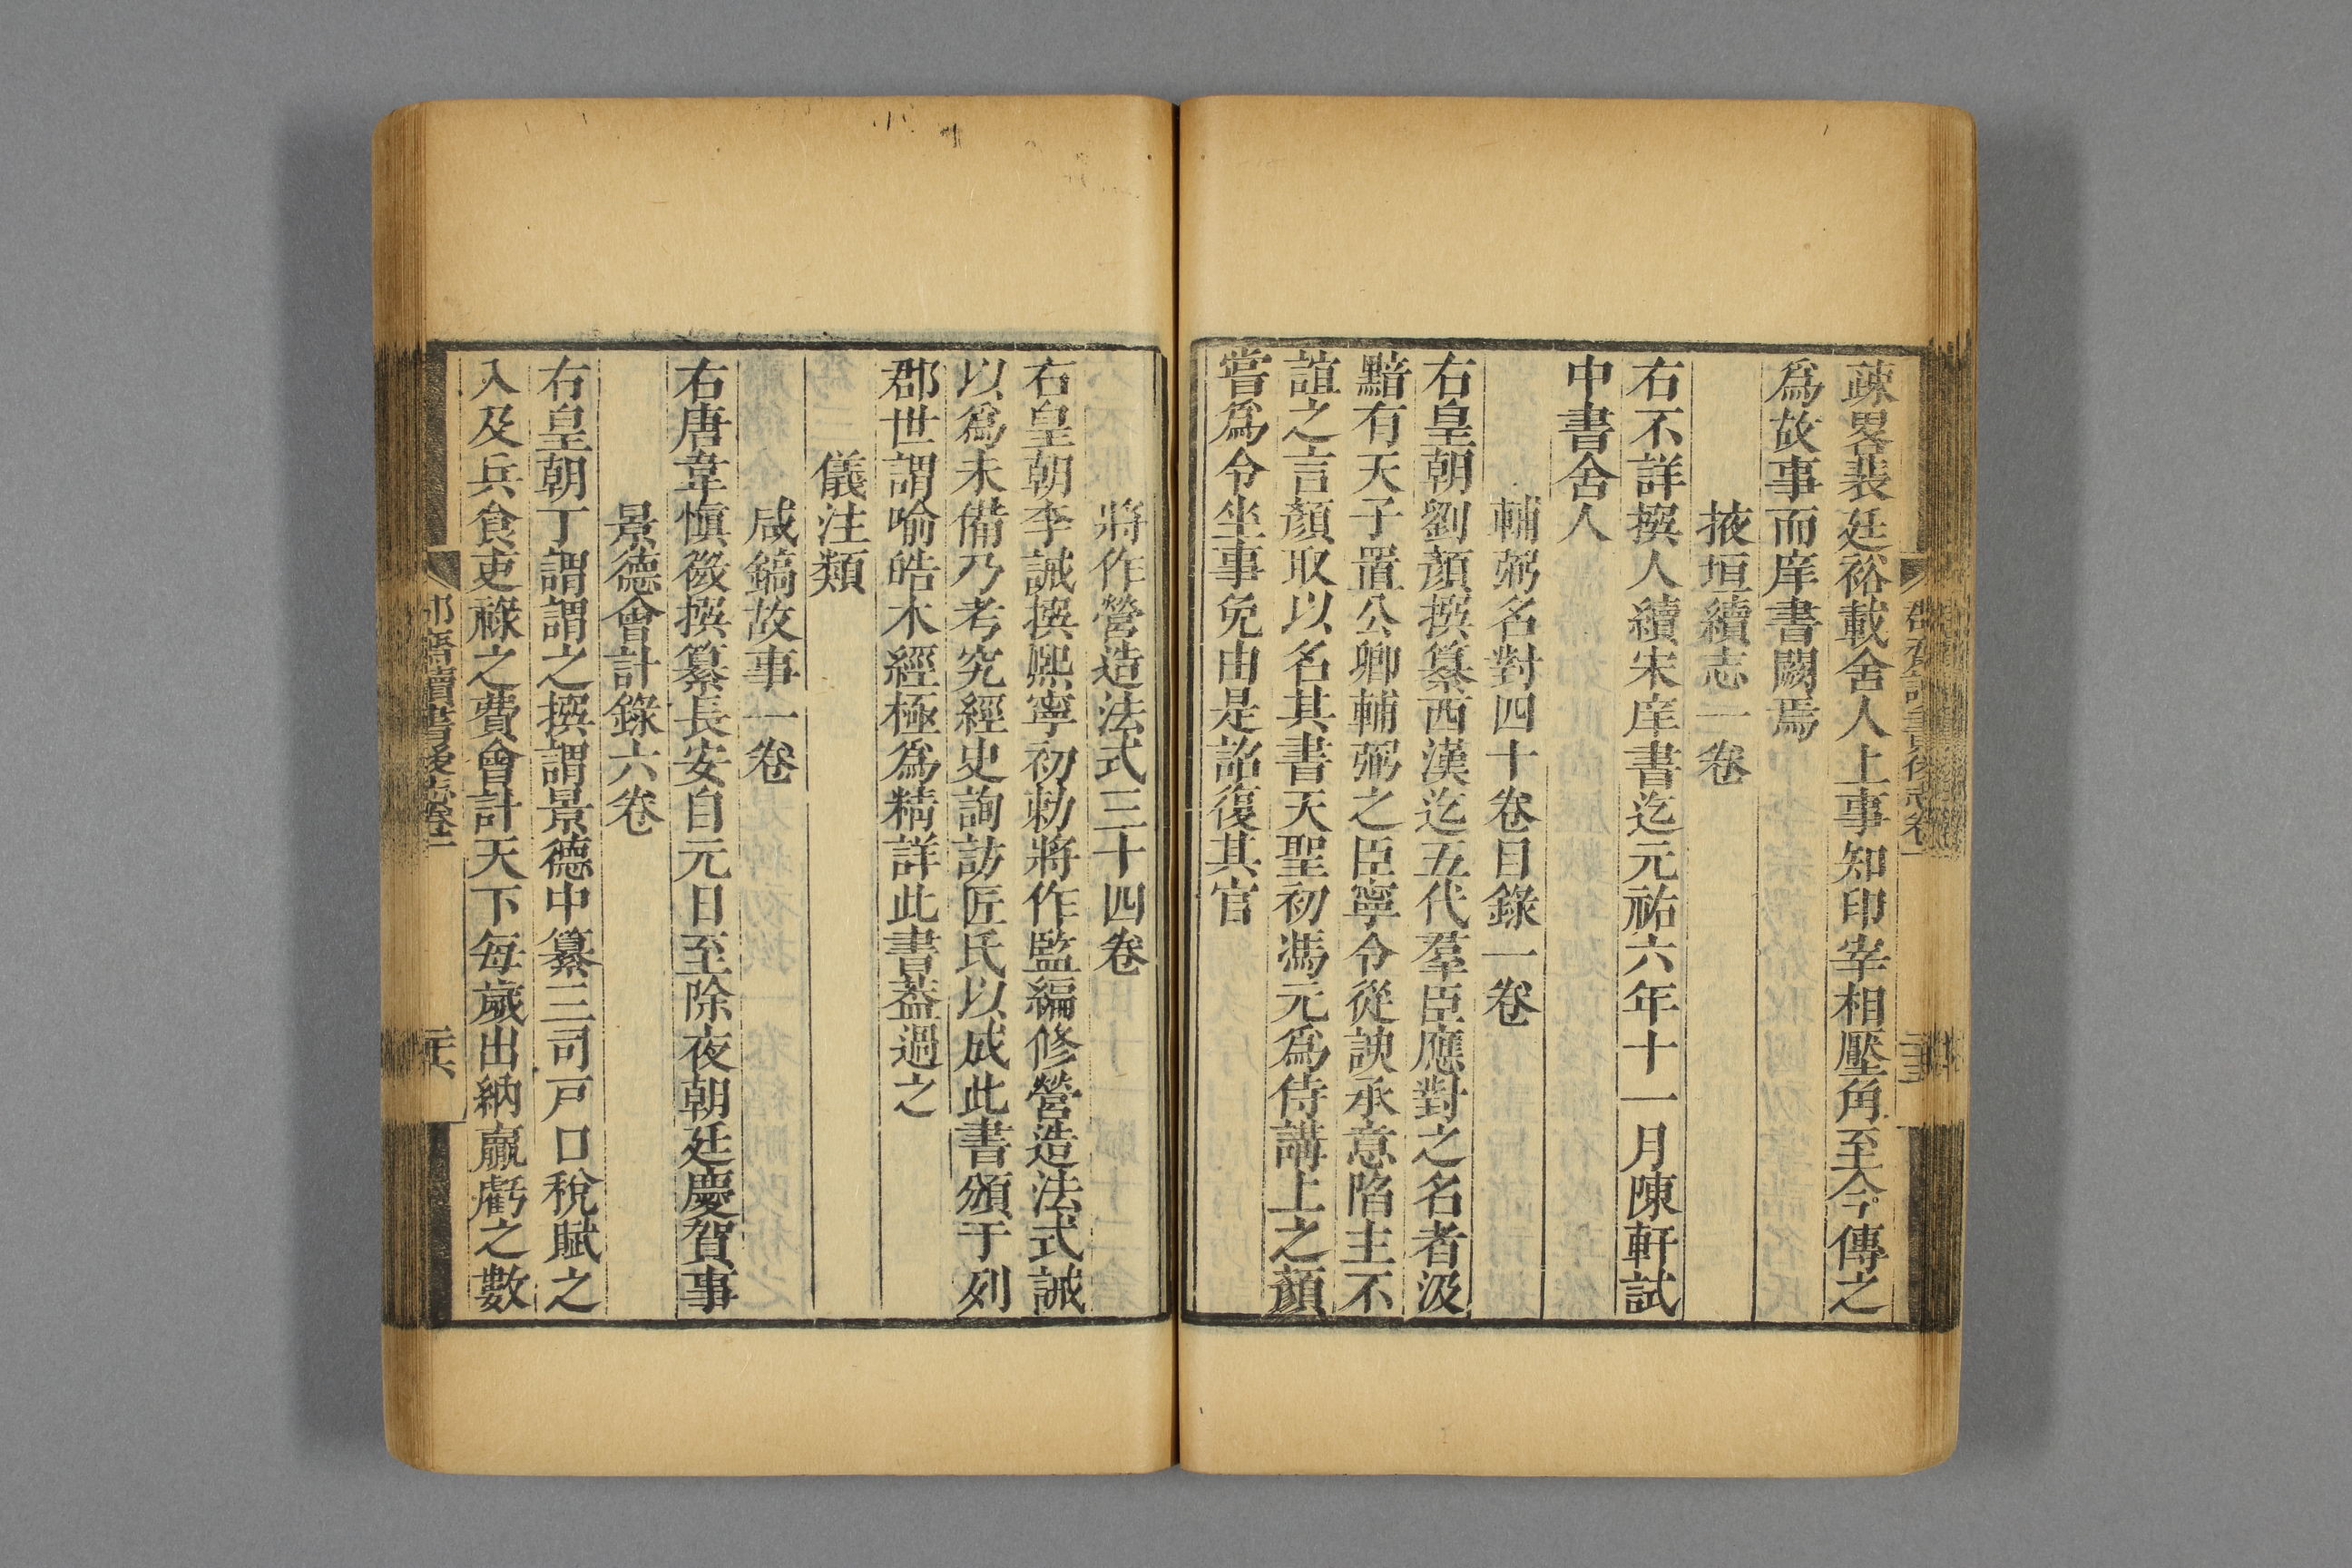 疎畧裴廷裕載舍人上事知印宰相壓角至今傳之
爲故事而庠書闕焉
掖垣續志一卷
右不詳撰人續宋庠書迄元祐六年十一月陳軒試
中書舍人
輔弼名對四十卷目錄一卷
右皇朝劉顏撰纂西漢迄五代羣臣應對之名者汲
黯有天子置公卿輔弼之臣寧令從諛承意陷主不
誼之言顏取以名其書天聖初馮元爲侍講上之顏
嘗爲令坐事免由是詔復其官
將作營造法式三十四卷
右皇朝李誡撰熙寧初勅將作監編修營造法式誡
以爲未備乃考究經史詢訪匠氏以成此書頒于列
郡世謂喻皓木經極爲精詳此書葢過之
儀注類
咸鎬故事一卷
右唐韋愼微撰纂長安自元日至除夜朝廷慶賀事
景德會計錄六卷
右皇朝丁謂謂之撰謂景德中纂三司戸口稅賦之
入及兵食吏祿之費會計天下每歲出納贏虧之數